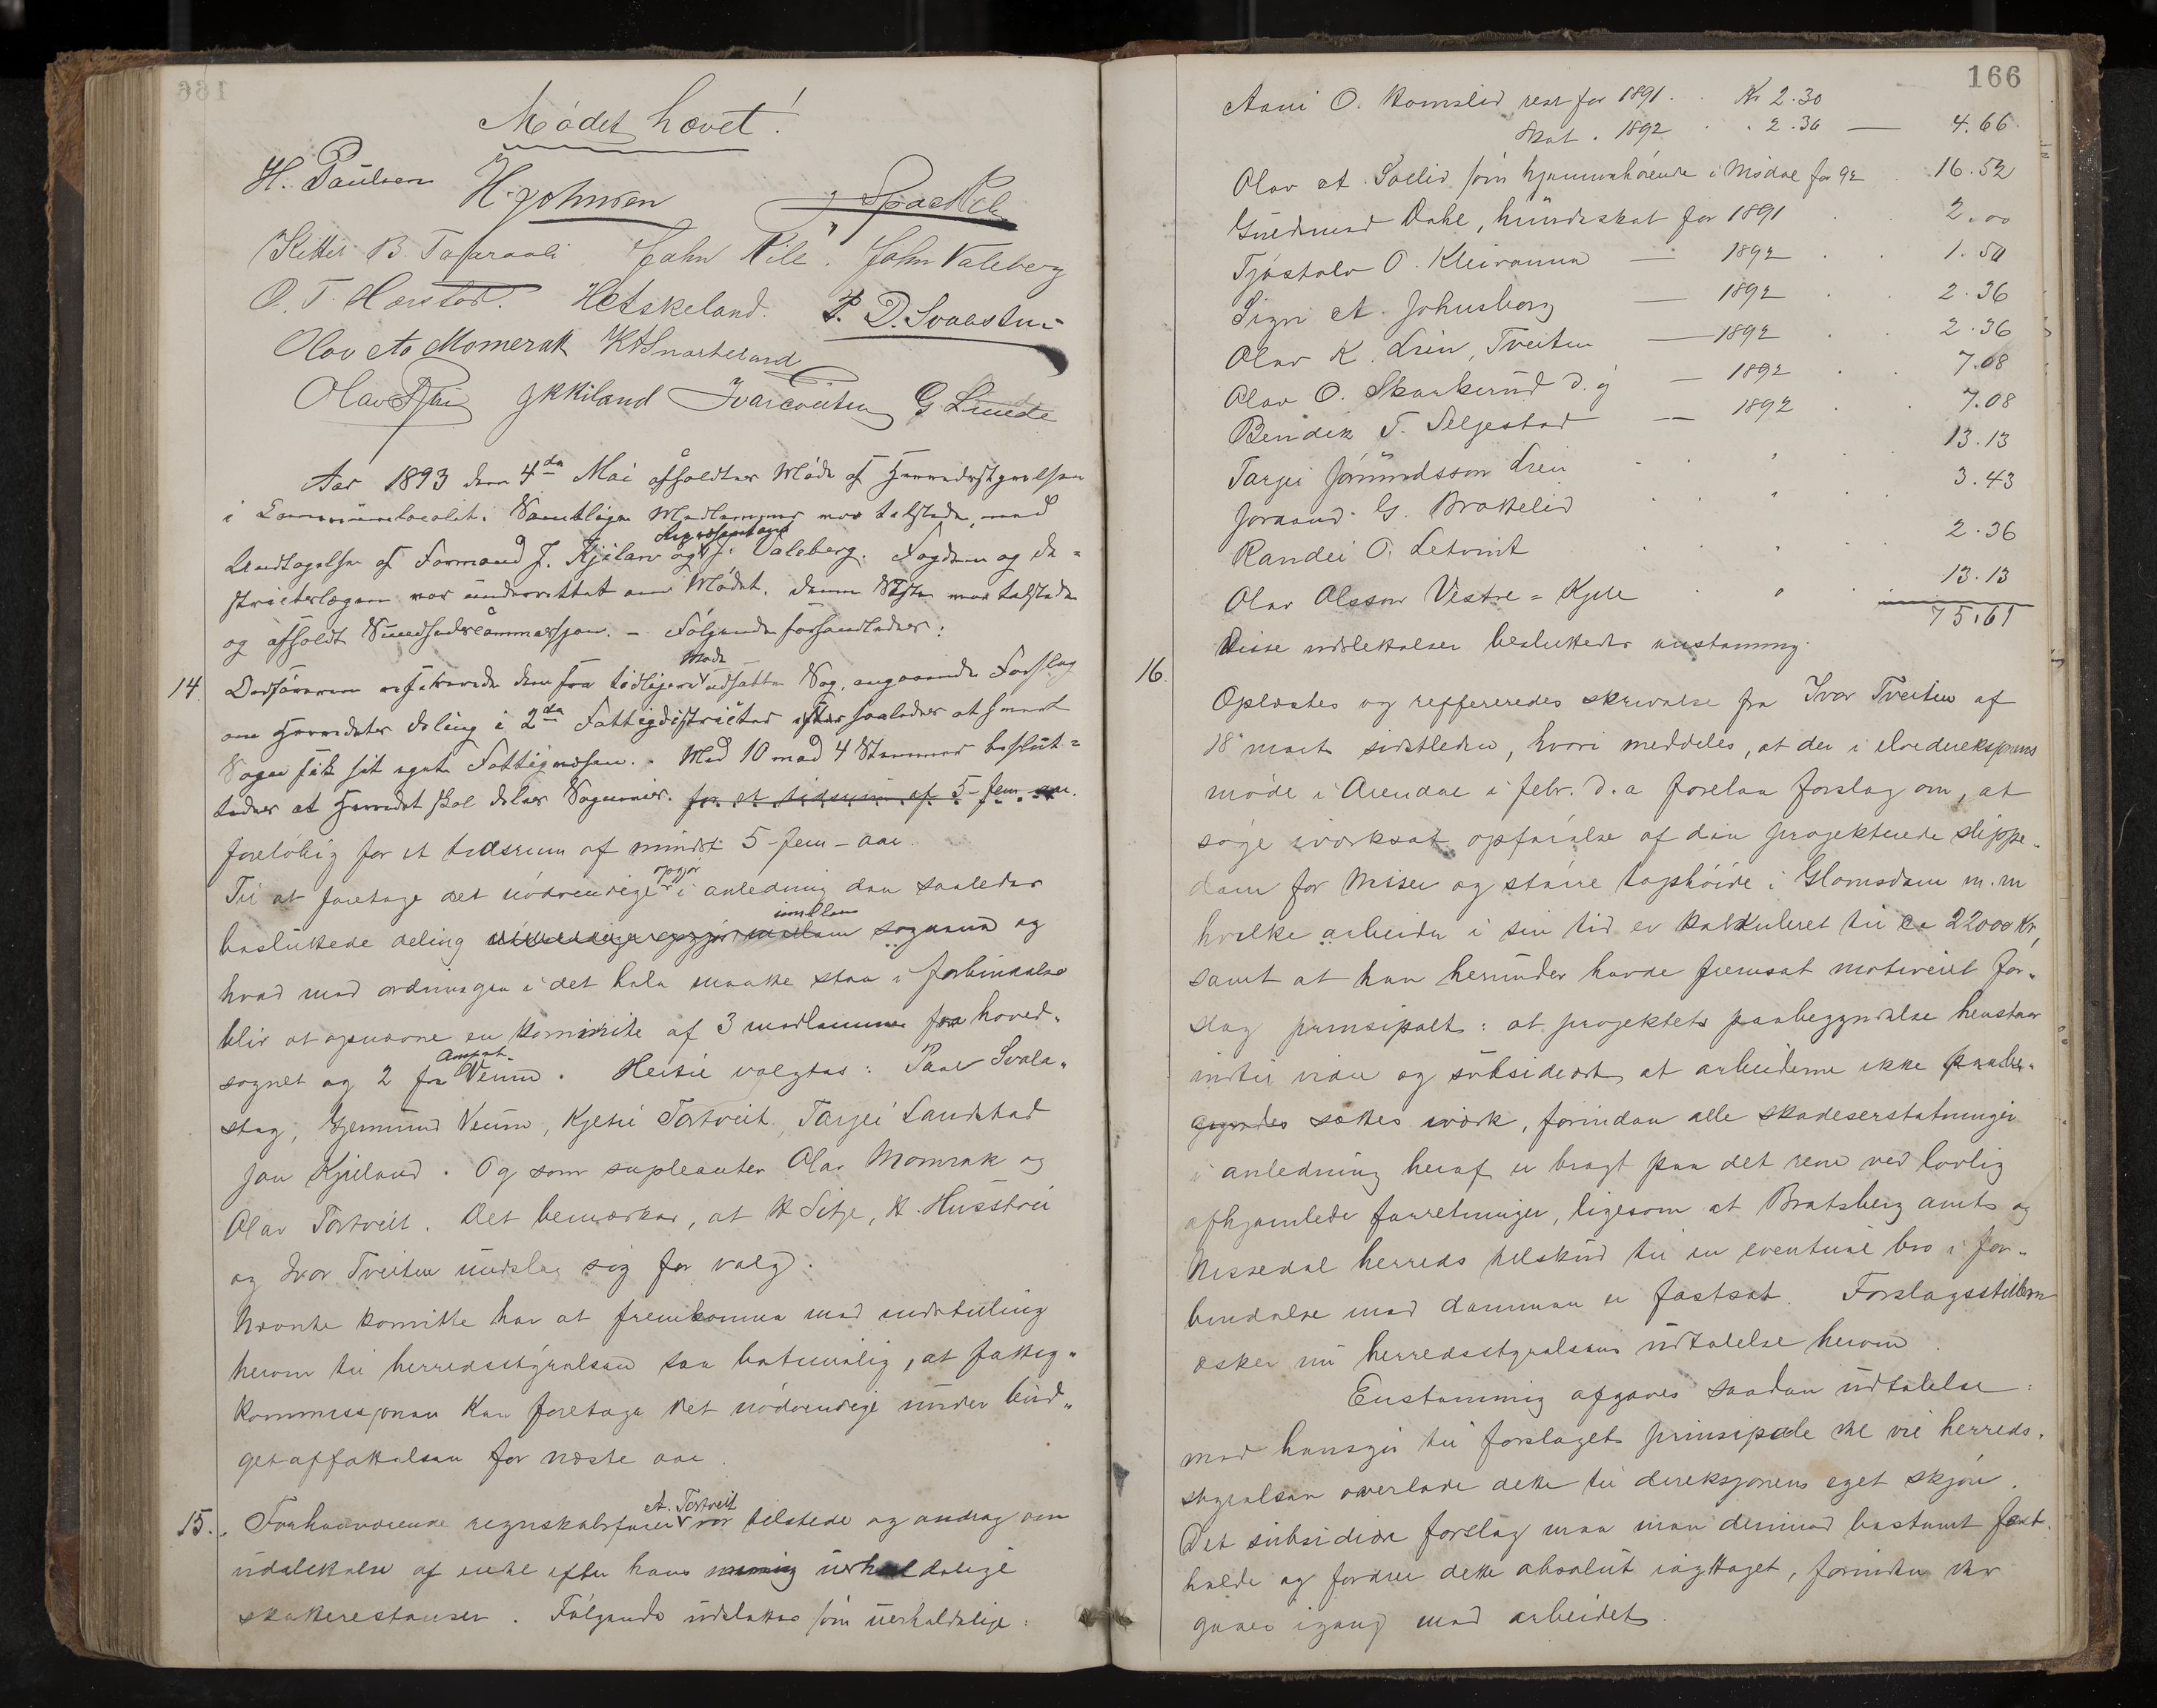 Mødet hævet!
H. Paulsen H. Johnsen
Kittil B. Tafraali John Kile. John Valeberg
O. T. Harstad. H A Askeland. P. D. Svalastu-
Olav A Momrak K A Snarteland
Olav J K Kiland Ivar Tveiten G. Limde
Aar 1893 den 4de Mai afholdtes Møde af Herredsstyrelsen
i Communelocalet. Samtlige Medlemmer var tilstede, med
Undtagelse af Formand J. Kjilan og Repræsentant J. Valeberg. Fogden og Di=
strictslægen var underrettet om Mødet. Denne Sidste var tilstede
og afholdt Sundhedscommission. – Følgende forhandledes:
14. Ordføreren refererede den fra tidligere Møde udsatte Sag, angaaende Forslag
om Herredets deling i 2de Fattigdistricter saaledes at hvert
Sogn fik sit eget Fattigvæsen. Med 10 mod 4 Stemmer beslut=
tedes at Herredet skal deles Sognevis. for et tidsrum af 5-fem aar.
foreløbig for et tidsrum af mindst 5-fem-aar.
Til at foretage det nødvendige opgjør i anledning den saaledes
besluttede deling imellem sognene og
hvad med ordningen i det hele maatte staa i forbindelse
blir at opnævne en kommite af 3 medlemmer fra hoved-
sognet og 2 fra Annext. Veum. Hertil valgtes: Paul Svala-
stog, Gjermund Veum, Kjetil Tortveit, Tarjei Landstad
Jon Kjiland. Og som supleanter Olav Momrak og
Olav Tortveit. Det bemærkes, at K Sitje, K. Husstøil
og Ivar Tveiten undslog sig for valg.
Nævnte komitte har at fremkomme med indstilling
herom til herredsstyrelsen saa betimelig, at fattig-
kommissjonen kan foretage det nødvendige under bud-
getaffattelsen for næste aar.
15. Forhenværende regnskabsfører A. Tortveit var tilstede og androg om
udslettelse af endel efter hans mening uerholdelige
skatterestanser. Følgende udslettes som uerholdelige:
166
Aani O. Komslid rest for 1891. Kr 2.30
Skat. 1892 2.36 — 4.66
Olav A. Solliv som hjemmehørende i Misdal for 92 16.52
Gudmund Dale, hundeskat for 1891 2.00
Tjøstolv O. Kleivanna — 1892 1.50
Signi A. Johnsborg — 1892 2.36
Olav K. Lien, Tveiten — 1892 2.36
Olav O. Skarkerud d.y — 1892 7.08
Bendik T. Seljestad — 1892 7.08
Tarjei Jørundsson Lien " 13.13
Joraand G. Brattelid " 3.43
Randei O. Letveit " 2.36
Olav Olsson Vestre=Kjile " 13.13
75.61
Disse udslettelser besluttedes enstemmig.
16. Oplæstes og reffereredes skrivelse fra Ivar Tveiten af
18 mart sidstleden, hvori meddeles, at der i elvedireksjonens
møde i Arendal i febr. d. a forelaa forslag om, at
søge iværksat opførelse af den projekterede slippe-
dam for Nisser og større taphøide i Glomsdam m.m
hvilke arbeider i sin tid er kalkuleret til ca 22000 Kr,
samt at han herunder havde fremsat motiveret for-
slag prinsipalt: at projektets paabegyndelse henstaar
indtil videre og subsidiært, at arbeiderne ikke paabe-
gyndes sættes iværk, forinden alle skadeserstatninger
i anledning heraf er bragt paa det rene ved lovlig
afhjemlede forretninger, ligesom at Bratsberg amts og
Nissedal herreds tilskud til en eventuel bro i for-
bindelse med dammen er fastsat. Forslagsstilleren
æsker nu herredsstyrelsens udtalelse herom.
Enstemmig afgaves saadan udtalelse:
med hensyn til forslagets prinsipale del vil herreds-
styrelsen overlade dette til direksjonens eget skjøn.
Det subsidiære forslag maa man derimod bestemt fast-
holde og fordrer dette absolut iagttaget, forinden der
gaaes igang med arbeidet.